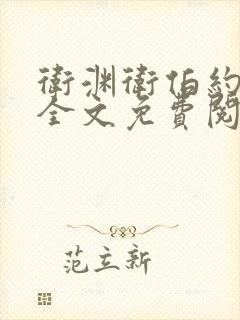 衛渊衛伯約
全文免費閱
范立新